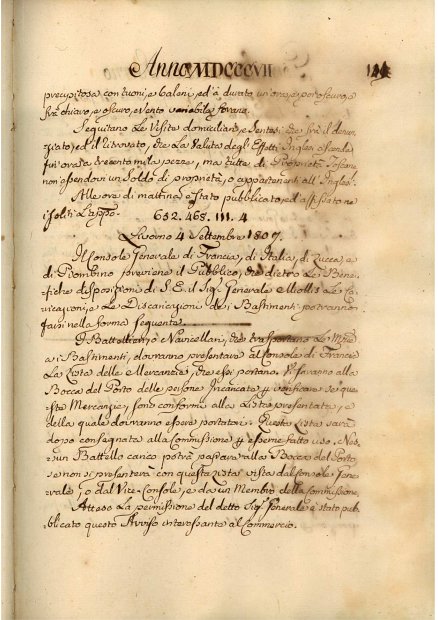 Anno MDCCCVII
precipitosa con tuoni, e baleni, ed à durato un'ora, e poi oscuro, e
frà chiaro, e oscuro, e vento variabile forano.
Seguitano le Visite domiciliari, e sentesi, che frà il denun-
ziato, ed il ritrovato, che la Valuta degli Effetti Inglesi ascenda
fin'ora a trecento mila pezze, ma tutte di Proprietà Toscane
non essendovi un Soldo di proprietà, o appartenenti all'Inglesi.
Alle ore di mattina è stato pubblicato, ed affissato ne
i soliti
652. 468. III. 4
Livorno 4 Settembre 1807.
Il Console Generale di Francia, di Italia, di Lucca, e
di Piombino previene il Pubblico, che dietro le Bene-
fiche disposizioni di S. E. il Sig. Generale Miollis le Ca-
ricazioni, e le Discaricazioni de i Bastimenti potranno
farsi nella forma seguente.
I Battellieri, o Navicellari, che trasportano le
a i Bastimenti, dovranno presentare al Console di Francia
la Lista delle Mercanzie, che essi portano. Vi saranno alla
Bocca del Porto delle persone Incaricate p. verificare se que-
ste Mercanzie, sono conformi alla Lista presentata, e
della quale dovranno essere portatori. Questa Lista sarà
dopo consegnata alla Commissione p. esserne fatto uso. Nes-
sun Battello carico potrà passare alla Bocca del Porto
se non si presenterà con questa Lista vista dal Console Gene-
rale, o dal Vice-Console, e da un Membro della Commissione.
Atteso la permissione del detto Sig. Generale è stato pub-
blicato questo Avviso interessante al Commercio.